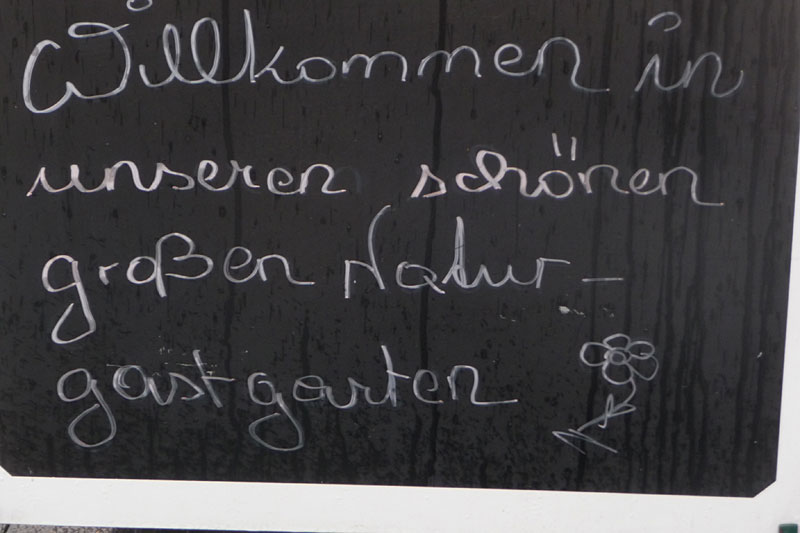 Willkommen in
unseren schönen
großen Natur-
gastgarten